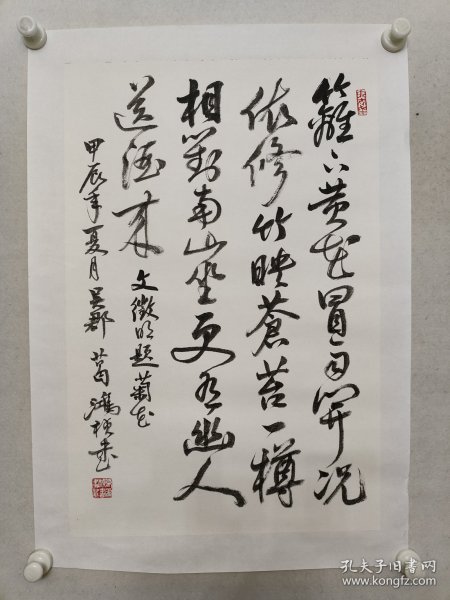 籬下黄花冒雨開况
依修竹映蒼苔一樽
相對南山坐更有幽人
送酒来 文徵明題菊花
甲辰年夏月吴郡葛鴻楨書
孔夫子旧书网
www.kongfz.com